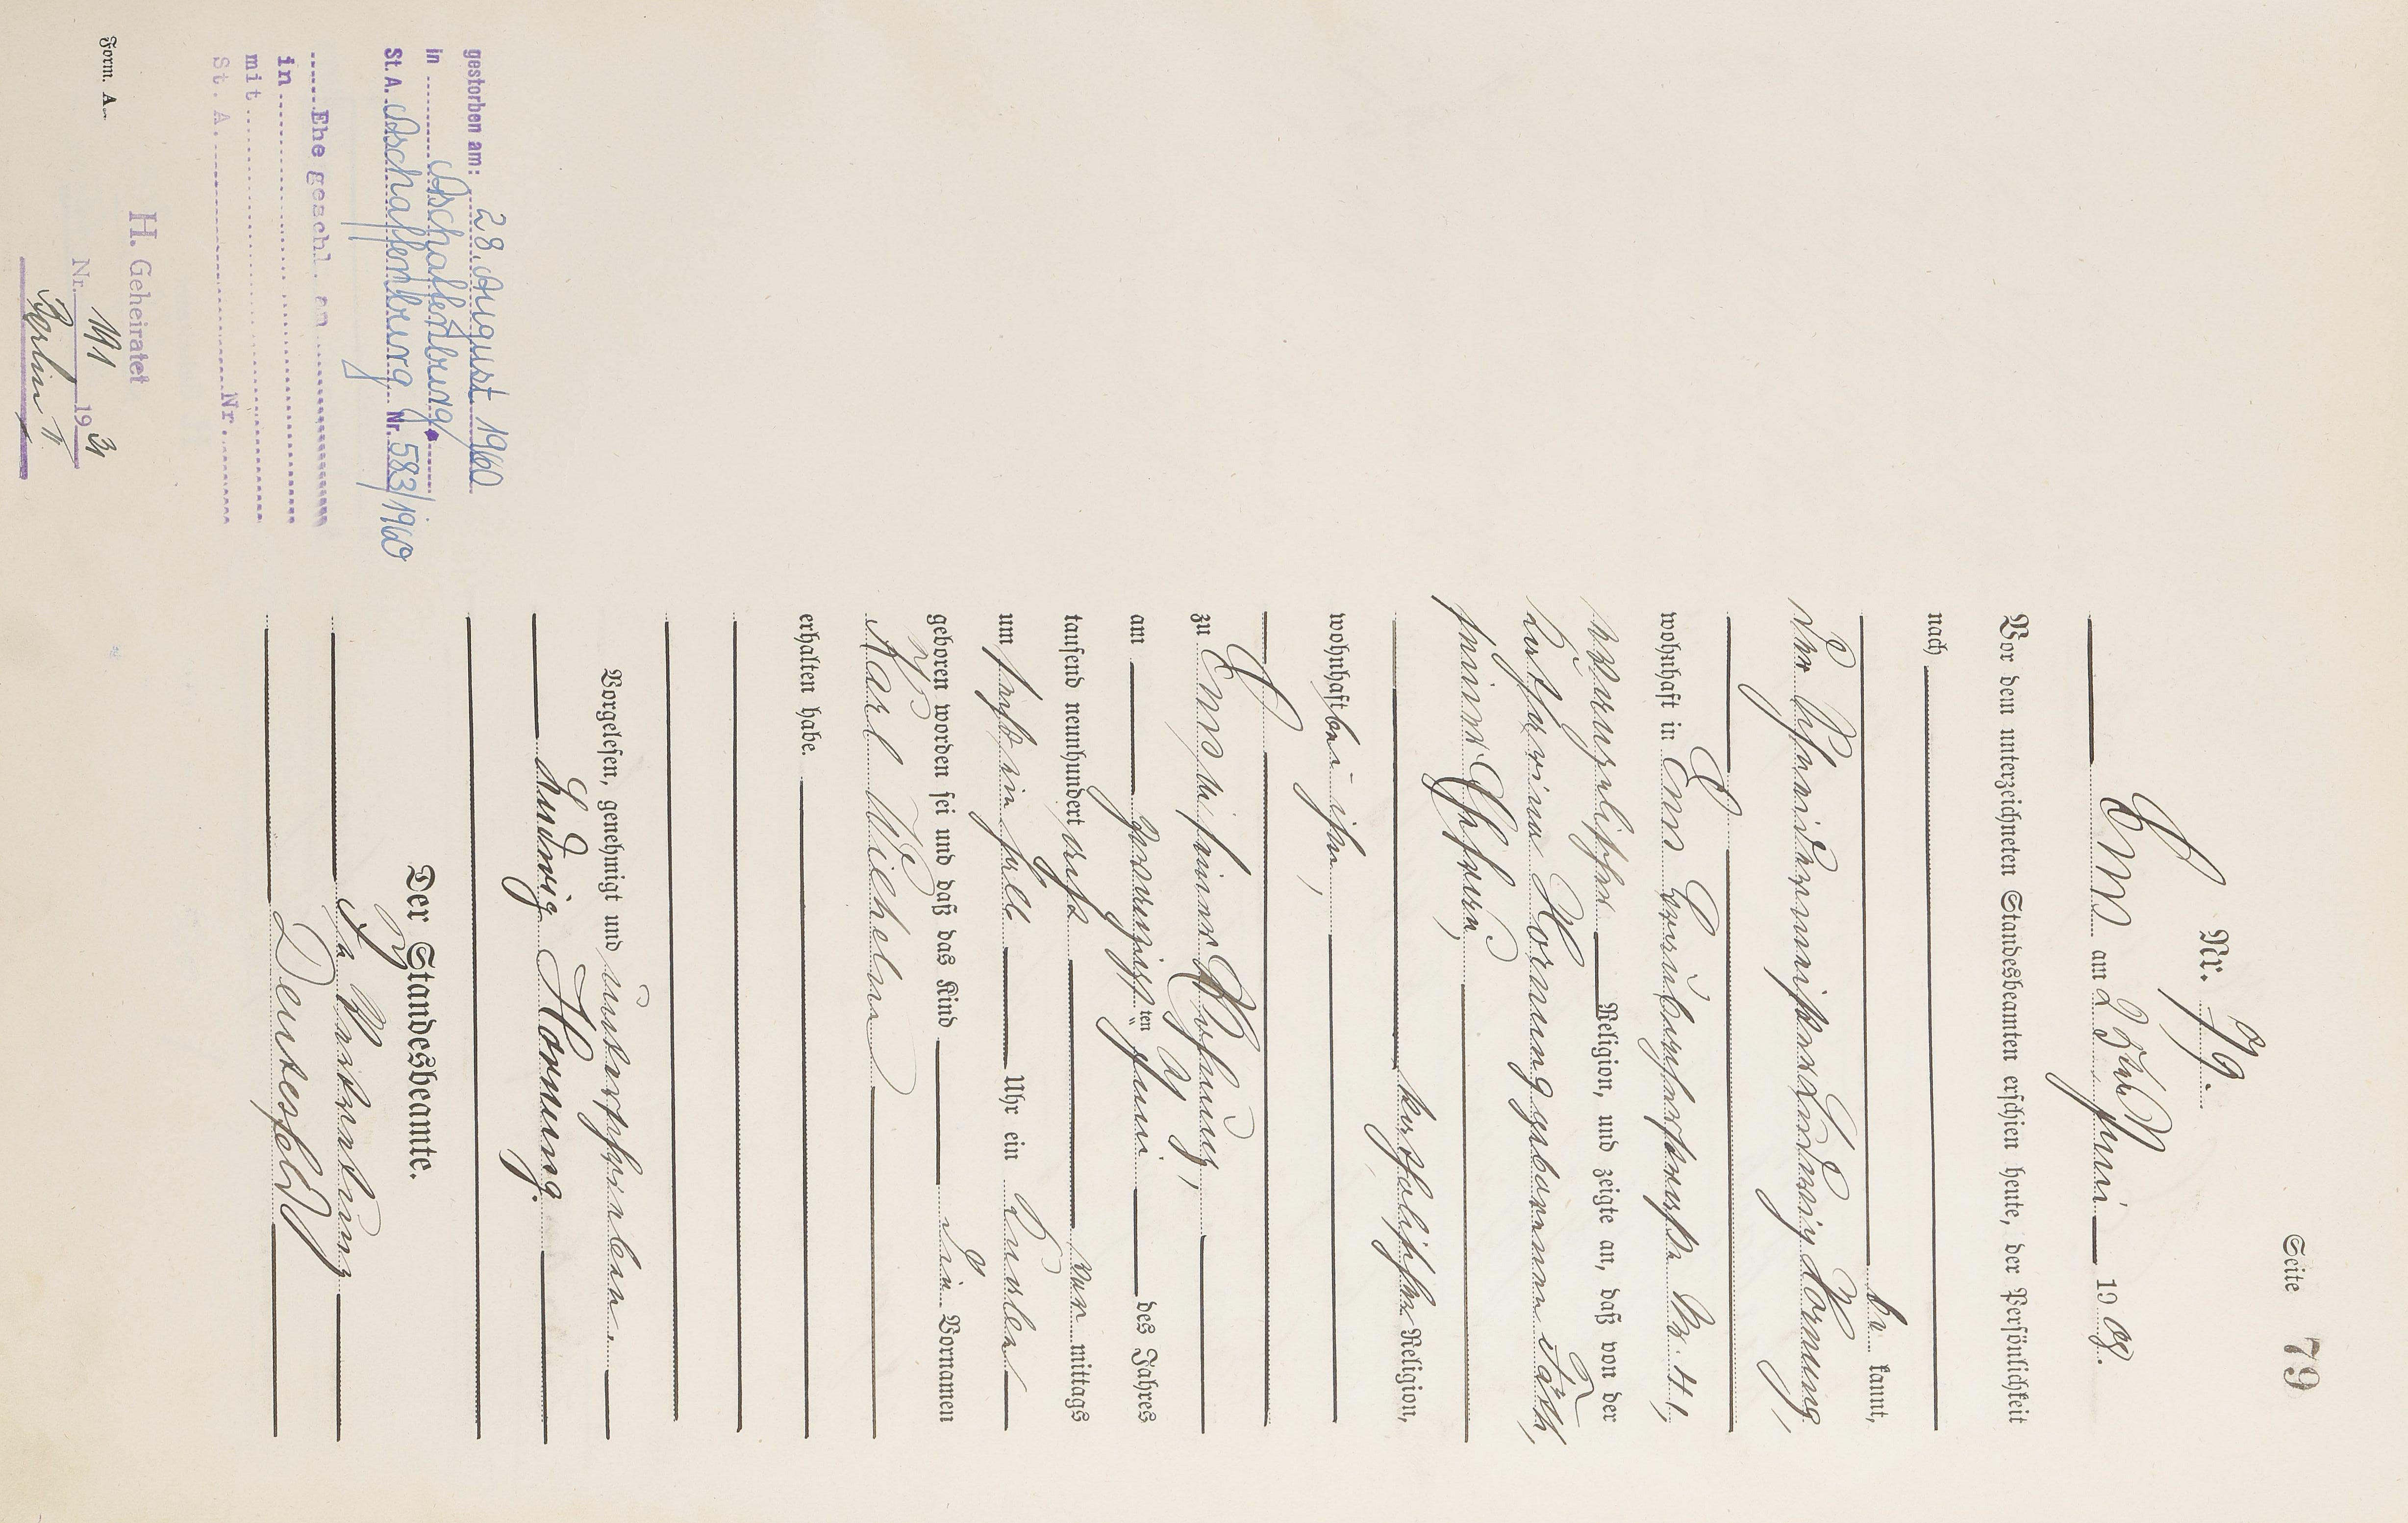 Seite 79
Nr. 79.
Ems am 23ten Juni 1908.
Vor dem unterzeichneten Standesbeamten erschien heute, der Persönlichkeit
nach
be kannt,
der Schneidermeister Ludwig Hornung,
wohnhaft in Ems Nr. 41,
evangelischer Religion, und zeigte an, daß von der
Katharina Hornung geborenen
seiner Ehefrau,
katholischer Religion,
wohnhaft bei ihm,
zu Ems in seiner Wohnung,
am zwanzigsten Juni des Jahres
tausend neunhundert acht Vor mittags
um sechs ein halb Uhr ein Knabe
geboren worden sei und daß das Kind die Vornamen
Karl Wilhelm
erhalten habe.
Vorgelesen, genehmigt und unterschrieben.
Ludwig Hornung.
Der Standesbeamte.
In Vertretung
gestorben am: 28. August 1960
in Aschaffenburg
St. A. Aschaffenburg Nr. 583/1960
Ehe geschl. am
in
mit
St. A. Nr.
H. Geheiratet
Nr. 191 1931
Berlin 1
Form. A.